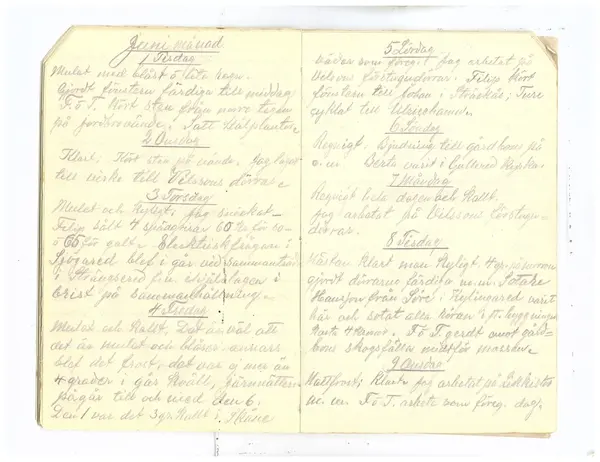 Juni månad
1 Tisdag
Mulat med blåst å lite regn.
gjordt fönstern färdiga till middag
F. o T. kört sten från nure tegen
på jordbrovände. Satt kålplantor.
2 Onsdag
Klart; kört sten på vände. Jag lagat
till virke till Nilssons dörrar
3 Torsdag
Mulat och kyligt; Jag snickat
Filip sålt 4 spädgrisar 60 kr för so-
o 65 för galt. Elecktriskfrågan i
Sjögared blef i går vid sammanträde
i Strängsered f.m. ihjälslagen i
brist på sammanhållning.
4 Fredag
Mulat och kallt. Det är väl att
det är mulat och blåser, annars
blef det frost, det var ej mer än
4 grader i går kväll, Järnnätter
pågår till och med den 6.
Den 1 var det 3 gr. kallt i Skåne
5 Lördag
väder som föreg. Jag arbetat på
Nilssons förstugudörrar. Filip kört
fönstern till Johan i Stråskås; Ture
cyklat till Ulricehamn.
6 Söndag
Regnigt. Bjudning till gårdbons på
e.m. Berta varit i Gullered kyrka.
7 Måndag
Regnigt hela dagen och kallt.
Jag arbetat på Nilssons förstugu-
dörrar.
8 Tisdag
Nästan klart men kyligt. 4 gr. på morgonen
gjordt dörrarne färdiga m.m. Sotare
Hansson från Söre i Hyllingared varit
här och sotat alla rören i st. byggningen
kaste 4 kronor. F. o T. gerdt emot gård-
bons skogsfållor nu
9 Onsdag
Nattfrost; klart. Jag arbetat på likkistor
m.m. F. o T. arbete som föreg. dag.